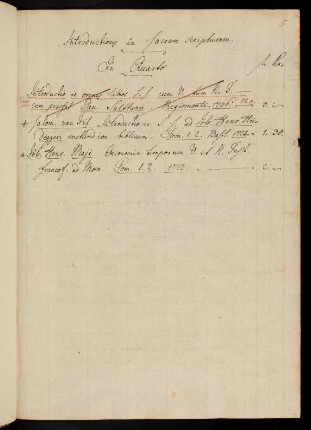 5
Introductiones in sacram scripturam.
In Quarto
fl. Kr.
Introductio in omnes libros S. S. cum V. tum N. T.
cum praefat. Dan. Salthenii Regiomonti, 1736. 12.
+ Salom. van Til Introductio in S. S. ad Joh. Henr. Hei
deggeri methodum Tom. 1. 2. Basil. 1722. 1. 30.
+ Joh. Henr. Maji Oeconomia temporum V. & N. Test.
Francof. ad Moen. Tom. 1. 2. 1712.